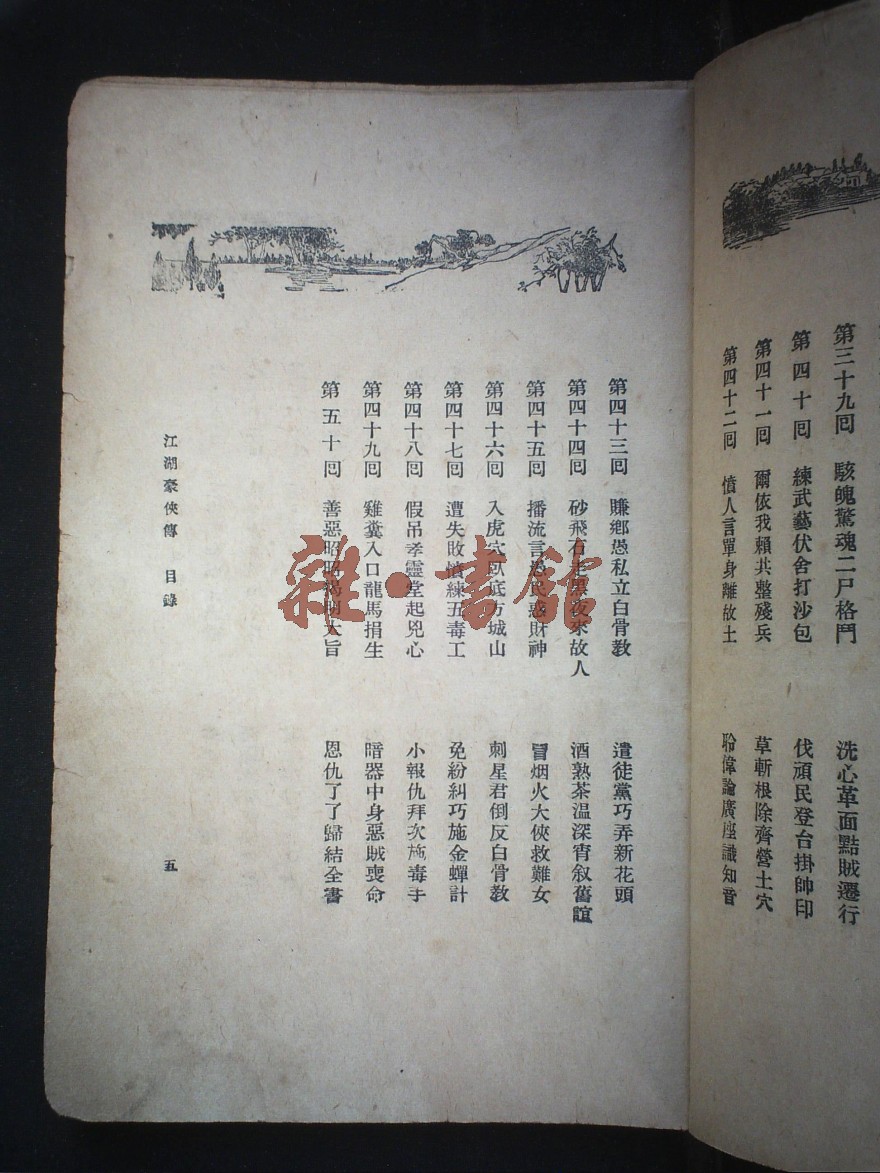 第三十九囘 駭魄驚魂二尸格鬥 洗心革面點賊遷行
第四十囘 練武藝伏舍打沙包 伐頑民登台掛帥印
第四十一囘 爾依我賴共整殘兵 草斬根除齊營土穴
第四十二囘 憤人言單身離故土 聆偉論廣座識知音
第四十三囘 賺鄉愚私立白骨教 遣徒黨巧弄新花頭
第四十四囘 砂飛石走黑夜來故人 酒熟茶温深宵叙舊誼
第四十五囘 播流言愚民惑財神 冒烟火大俠救難女
第四十六囘 入虎穴臥底方城山 刺星君倒反白骨教
第四十七囘 遭失敗練五毒工 免紛糾巧施金蟬計
第四十八囘 假吊孝靈堂起兇心 小報仇拜次施毒手
第四十九囘 雞糞入口龍馬捐生 暗器中身惡賊喪命
第五十囘 善惡昭昭大旨 恩仇了了歸結全書
江湖豪俠傳 目錄
五
雜·書館